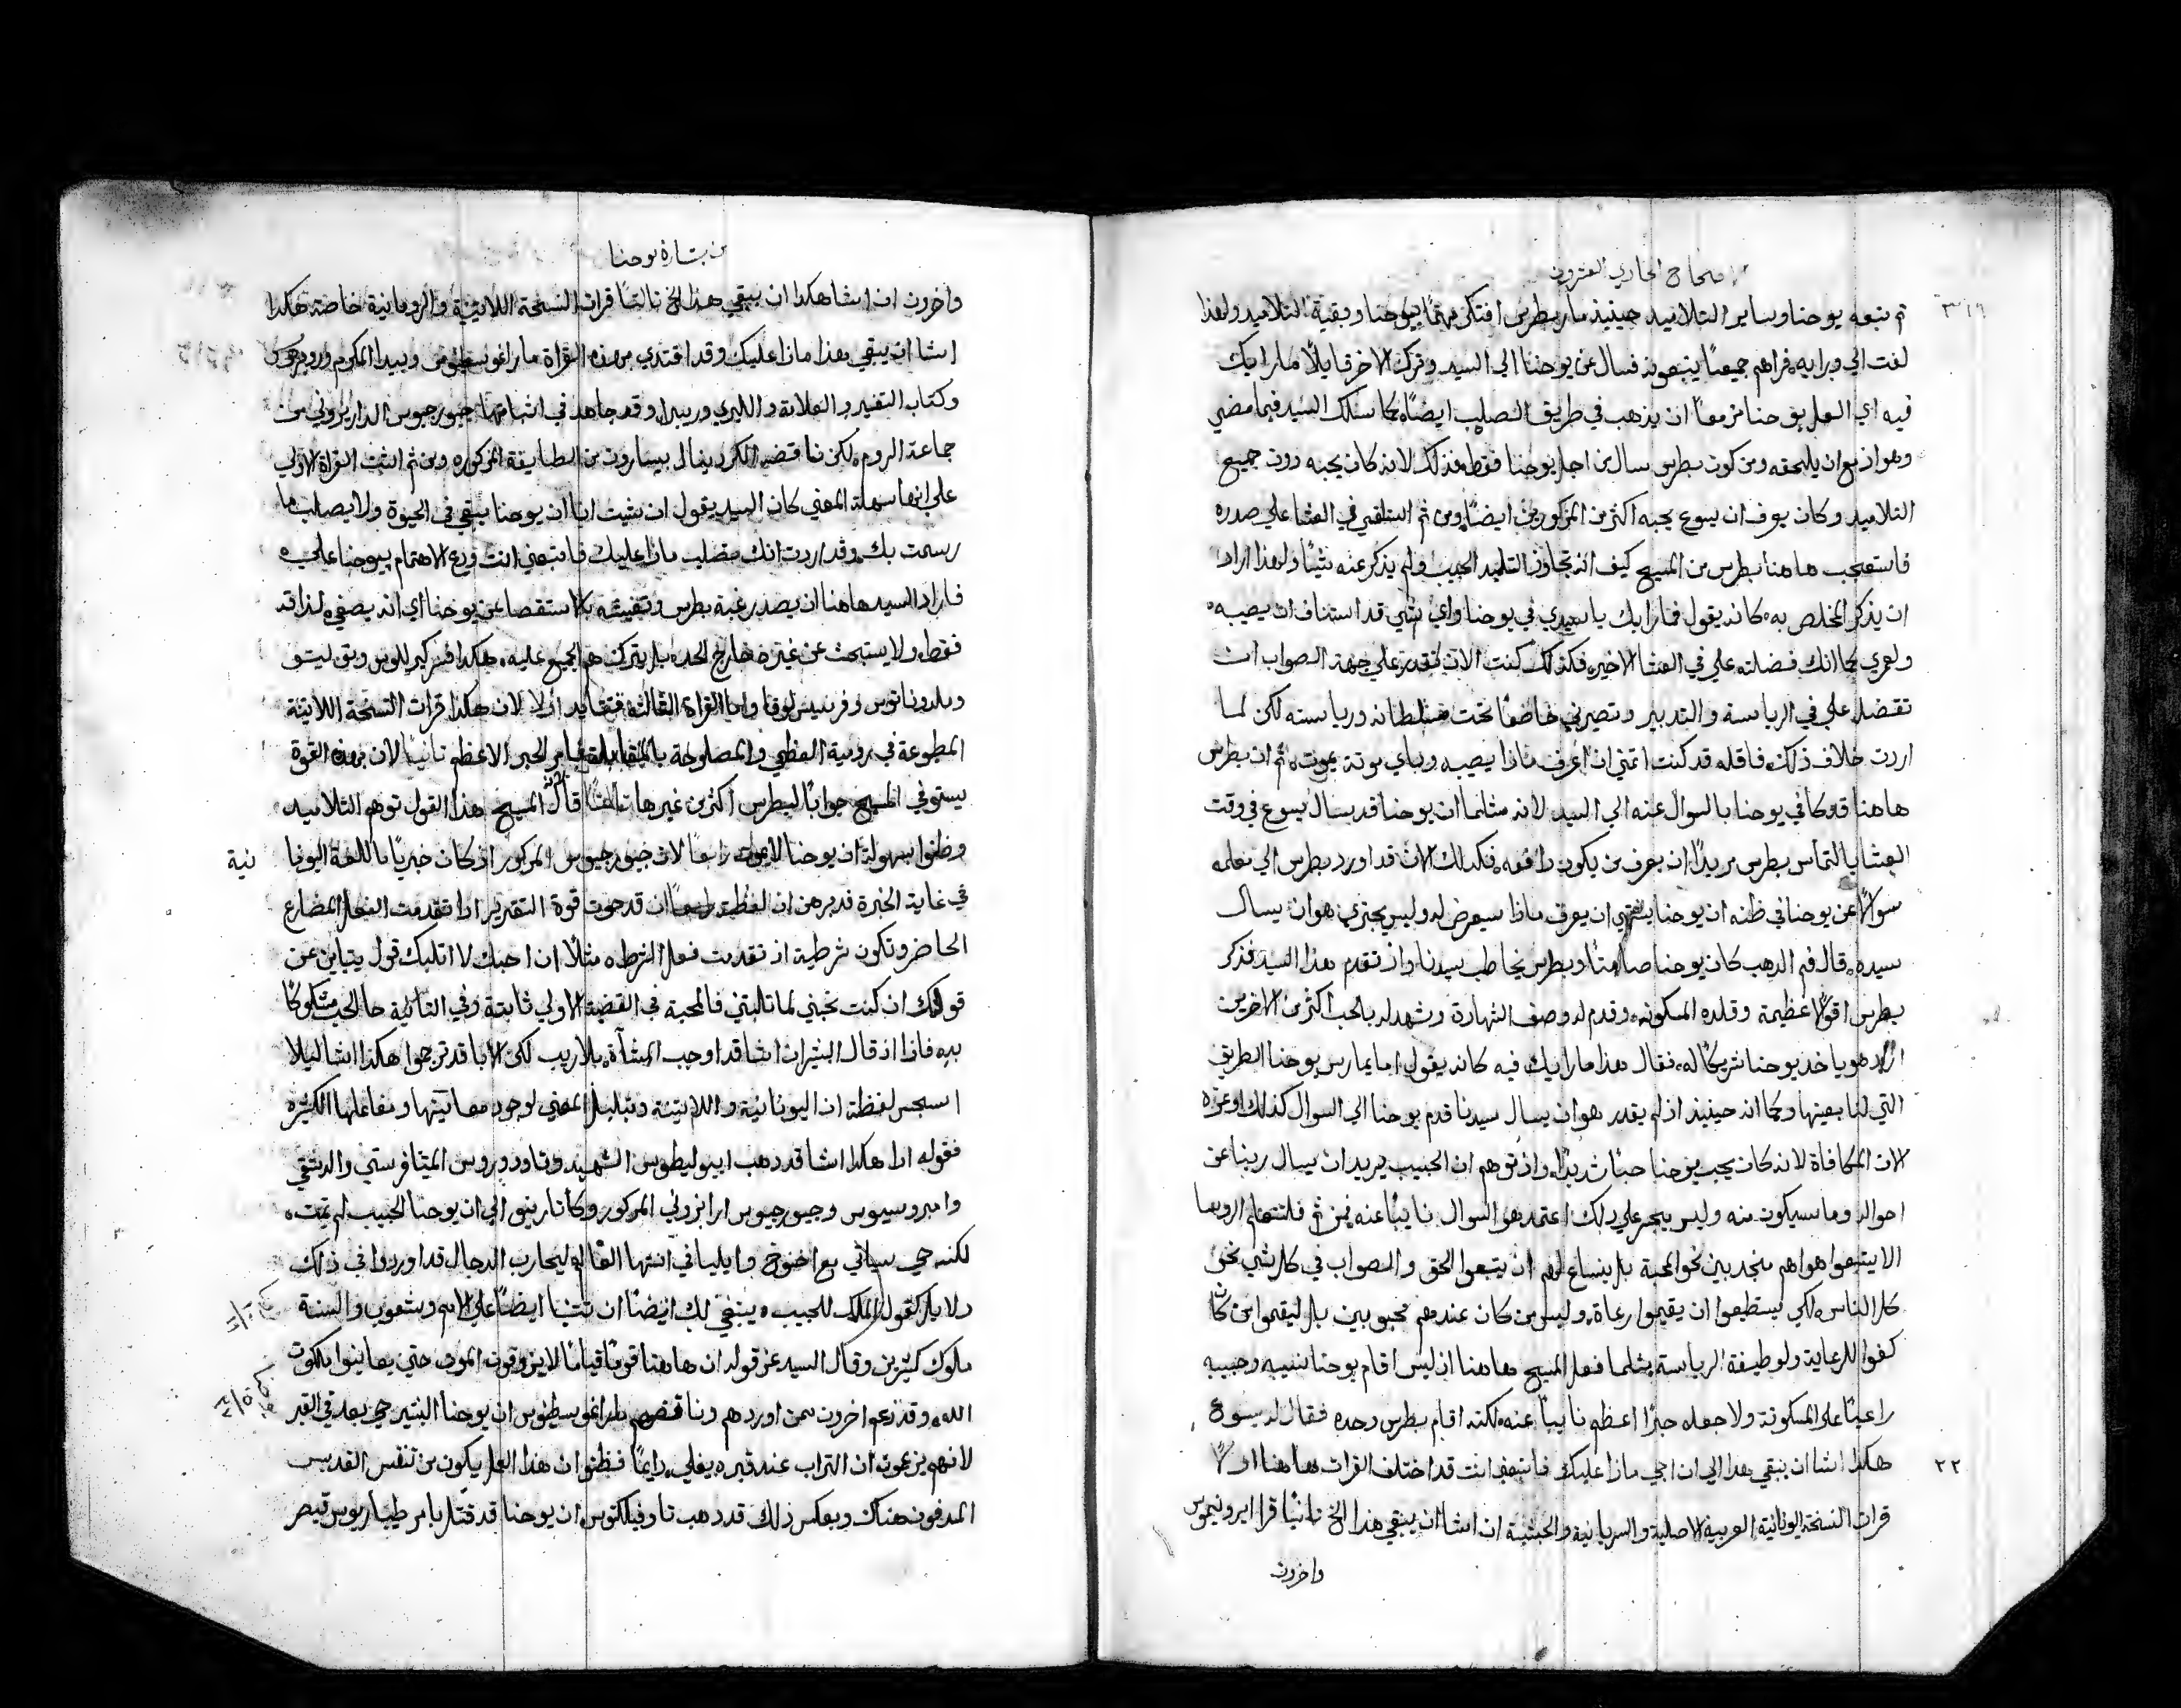 الاصحاح الحادي العشرون
ثم تبعه يوحنا وساير التلاميد حينيذ مار بطرس افتكر مهتمًا بيوحنا وبقية التلاميد ولهذا
لفت الي ورايه فراهم جميعًا يتبعونه فسال عن يوحنا الي السيد وترك الاخر قايلًا ما رايك
فيه اي العل يوحنا مزمعًا ان يذهب في طريق الصليب ايضًا كما سلك السيد فيما مضي
وهو ازمع ان يلحقه ومن كون بطرس سال من اجل يوحنا فقط فذلك لانه كان يحبه دون جميع
التلاميد وكان يعرف ان يسوع يحبه اكثر من المذكورين ايضًا ومن ثم استلقي في العشا علي صدره
فاستعجب هاهنا بطرس من المسيح كيف انه تجاوز التلميد الحبيب ولم يذكر عنه شيًا ولهذا اراد
ان يذكر المخلص به كانه يقول فما رايك يا سيدي في يوحنا واي شي قد استناف ان يصيبه
ولعمري كما انك فضلته علي في العشا الاخير فكذلك كنت الان تقدر علي جهة الصواب ان
تفضله علي في الرياسة والتدبير وتصيرني خاضعًا تحت سلطانه ورياسته لكن لما
اردت خلاف ذلك فاقله قد كنت اتمني ان اعرف ماذا يصيبه وباي موتة يموت ثم ان بطرس
هاهنا قد كافي يوحنا بالسوال عنه الي السيد لانه مثلما ان يوحنا قد سال يسوع في وقت
العشا بالتماس بطرس مريدًا ان يعرف من يكون دافعه فكدلك الان قد اورد بطرس الي معلمه
سوالًا عن يوحنا في ظنه ان يوحنا يشتهي ان يعرف ماذا سيعرض له وليس يجتري هو ان يسال
سيده قال فم الدهب كان يوحنا صامتًا وبطرس يخاطب سيدنا واذ تقدم هذا السيد فذكر
بطرس اقوالًا عظيمة وقلده المسكونه وقدم له وصف الشهادة وشهد له بالحب اكثر من الاخرين
اراد هو ياخذ يوحنا شريكًا له فقال هذا ما رايك فيه كانه يقول اما يمارس يوحنا الطريق
التي لنا بعينها وكما انه حينيذ اذ لم يقدر هو ان يسال سيدنا قدم يوحنا الي السوال كذلك اوعزه
الان المكافاة لانه كان يحب يوحنا حبًا شديدًا واذ توهم ان الحبيب يريد ان يسال ربنا عن
احواله وما سيكون منه وليس يجسر علي ذلك اعتمد هو السوال نايبًا عنه فمن ثم فلتتعلم الروسا
الا يتبعوا هواهم منجدبين نحو المحبة بل ينساع لهم ان يتبعوا الحق والصواب في كل شي نحو
كل الناس لكي يستطيعوا ان يقيموا رعاة وليس من كان عندهم محبوبين بل ليقيموا من كان
كفوا للرعاية ولوظيفة الرياسة مثلما فعل المسيح هاهنا اذ ليس اقام يوحنا نسيبه وحبيبه
راعيًا علي المسكونة ولا جعله حبرًا اعظم نايبًا عنه لكنه اقام بطرس وحده فقال له يسوع
٢٢
هكدا اشا ان يبقي هدا الي ان اجي ماذا عليك فاتبعني انت قد اختلف القرات هاهنا اولًا
قرات النسخة اليونانية العربية الاصلية والسريانية والحبشية ان اشا ان يبقي هذا الخ ثانيًا قرا ايرونيموس
واخرون
من بشارة يوحنا
واخرون ان اشا هكدا ان يبقي هذا الخ ثالثًا قرات النسخة اللاتينية والرومانية خاصة هكدا
اشا ان يبقي هذا ماذا عليك وقد اقتدي بهذه القراة مار اغوسطينوس وبيدا المكرم
وكتاب التفسير العلامة والليري وريبيرا وقد جاهد في اثباتها جيورجيوس الدارابزوني من
جماعة الروم لكن ناقضه الكردينال بيساريون من الطايفة المذكوره ومن ثم اثبت القراة الاولي
علي انها سهلة المعني كان السيد يقول ان شيت انا ان يوحنا يبقي في الحيوة ولا يصلب ما
رسمت بك وقد اردت انك تصلب ماذا عليك فاتبعني انت ودع الاهتمام بيوحنا علي
فاراد السيد هاهنا ان يصد رغبة بطرس وتفتيشه بالاستقصا عن يوحنا اي انه يصغي لذاته
فقط ولا يستبحث عن غيره خارج الحد بل يترك هم الجميع عليه هكدا فسر كيرللوس
وملدوناتوس وفرنسيس لوقا واما القراة الثالثة فتفايد اولًا لان هكذا قرات النسخة اللاتينة
المطبوعة في رومية العظمي والمصلوحة بالمقابلة بامر الحبر الاعظم ثانيًا لان بهذه القوة
يستوفي المسيح جوابًا لبطرس اكثر من غيرها ثالثًا لان قال المسيح هذا القول توهم التلاميد
وظنوا بسهولة ان يوحنا لا يموت رابعًا لان جيورجيوس المذكور اذ كان خبريًا باللغة اليونا
نية
في غاية الخبرة قد برهن ان لفظة ان قد حوت قوة التقرير اذا تقدمت الفعل المضارع
الحاضر وتكون شرطية اذ تقدمت فعل الشرط مثلًا ان احبك لا اتلبك قول يتباين عن
قولك ان كنت تحبني لما تالبتني فالمحبة في القضية الاولي ثابتة وفي الثانية حال الحب مشكوكًا
بيه فاذا اذ قال البشير ان اشا قد اوجب المشآة بلا ريب لكن الابا قد ترجموا هكذا اشا ليلا
لفظة ان اليونانية واللاتينة وتبلبل المعني لوجود معانيتها ومفاعلها الكثيره
فقوله اذا هكذا اشا قد ذهب ايبوليطوس الشهيد وتاودوروس الميتافرستي والدمشقي
وامبروسيوس وجيورجيوس ارابزوني المذكور وكاتارينو الي ان يوحنا الحبيب لم يمت
لكنه حي سياتي مع اخنوخ وايليا في انتها العالم ليحارب الدجال قد اوردوا في ذلك
دلايل كقول الملك للحبيب ينبغي لك ايضًا ان تتنبا ايضًا علي الامم وشعوب والسنة
ملوك كثيرين وقال السيد عز قوله ان هاهنا قومًا قيامًا لا يذوقون الموت حتي يعاينوا ملكوت
الله وقد زعم اخرون ممن اوردهم وناقضهم مار اغوسطينوس ان يوحنا البشير حي بعد في القبر
لانهم يزعمون ان التراب عند قبره يغلي دايمًا فظنوا ان هذا العل يكون من تنفس القديس
المدفون هناك وبعكس ذلك قد ذهب تاوفيلكتوس ان يوحنا قد قتل بامر طيباريوس قيصر